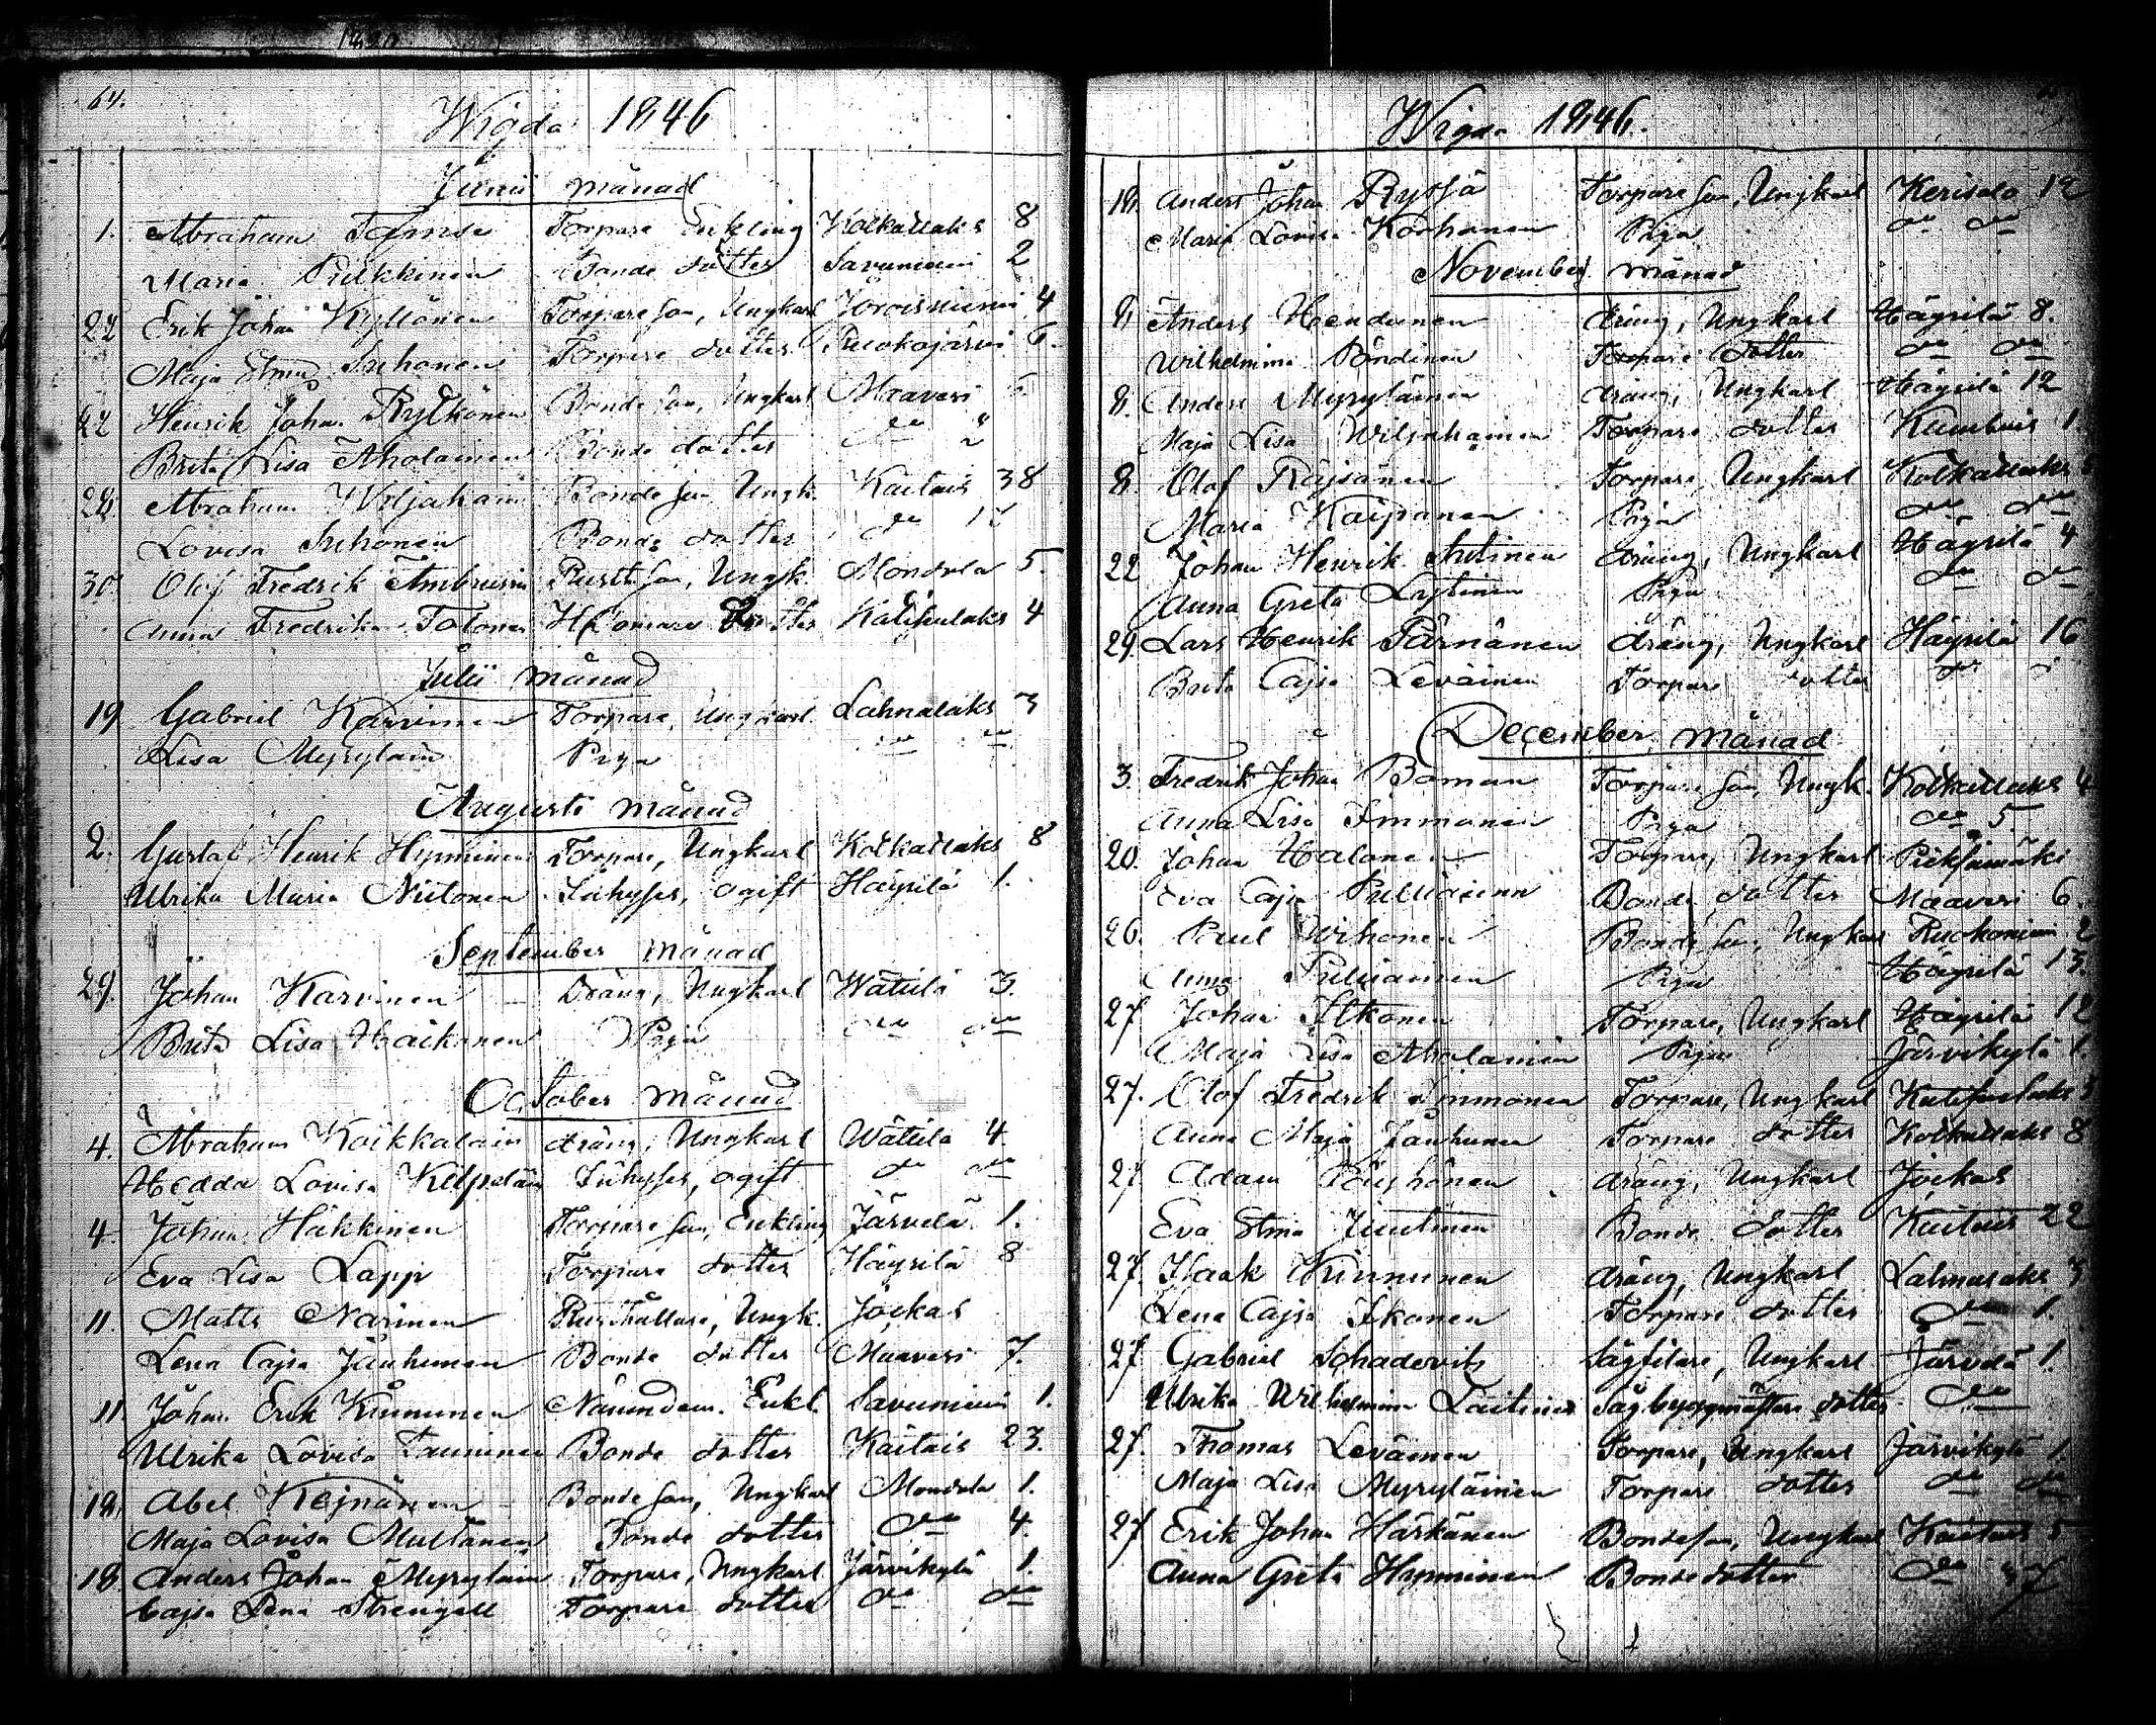 64.
Wigda 1846
Junii månad
1. Abraham Torpare Enkling Kolkanlaks 8
Maria Pulkkinen Bonde dotter Savuniemi 2
22 Erik Johan Kyllönen Torpare son, Ungkarl Joroisniemi 4
Maja Stina Suhonen Torpare dotter Ruokojärvi 6.
22 Henrik Johan Rytkönen Bonde son, Ungkarl Maaveri 5
Brita Lisa Aholainen Bonde dotter do
28. Abraham Wiljakain Bonde son Ungk. Kaitais 38
Lovisa Suhonen Bonde dotter do
30. Olof Fredrik Ambrusin Rusth. son, Ungk. Mondola 5.
Anna Fredrika Tolonen dotter 4
Julii månad
19 Gabriel Karvinen Torpare, Ungkarl Lahnalaks 3
Lisa Myrylain Piga do do
Augusti månad
2. Gustaf Henrik Hynninen Torpare, Ungkarl Kolkanlaks 8
Ulrika Maria Niilonen Inhyses, ogift Häyrilä 1.
September månad
29. Johan Karvinen Dräng, Ungkarl Wättilä 3.
Brita Lisa Haikonen Piga do do
October månad
4. Abraham Koikkalain dräng, Ungkarl Wättilä 4.
Hedda Lovisa Kilpeläin Inhyses, ogift do do
4. Johan Häkkinen Torpare son, Enkling Järvelä 1.
Eva Lisa Lapp Torpare dotter Häyrilä 8
11. Matts Narinen Rusthållare, Ungk. Jockas
Lena Cajsa Jauhunen Bonde dotter Maaveri 7.
11 Johan Erik Kinnunen Nämndem. Enkl. Savuniemi 1.
Ulrika Lovisa Tauninen Bonde dotter Kaitais 23.
18. Abel Keinänen Bonde son, Ungkarl Mondola 1.
Maja Lovisa Multanen Bonde dotter do 4.
18 Anders Johan Myryläin Torpare, Ungkarl Järvikylä 1.
Cajsa Lena Strengell Torpare dotter do do
Wigda 1846.
18. Anders Johan Rytsä Torpare son, Ungkarl Kerisalo 12
Maria Lovisa Korhonen Piga do do
November månad
8 Anders Hendunen dräng, Ungkarl Häyrilä 8.
Wilhelmina Pöndinen Torpare dotter do do
8. Anders Myryläinen dräng, Ungkarl Häyrilä 12
Maja Lisa Wiljakainen Torpare dotter 1.
8. Olof Räisänen Torpare, Ungkarl Kolkanlaks
Maria Kaipanen Piga do do
22 Johan Henrik Autinen dräng, Ungkarl Häyrilä 4
Anna Greta Lyytinen Piga do do
29. Lars Henrik Pärnänen dräng, Ungkarl Häyrilä 16
Brita Cajsa Leväinen Torpare dotter do
December månad
3. Fredrik Johan Boman Torpare son, Ungk. Kolkanlaks 4
Anna Lisa Immonen Piga do 5.
20. Johan Halonen Torpare, Ungkarl Pieksämäki
Eva Cajsa Pulliainen Bonde dotter Maaveri 6.
26. Paul Wihonen Bonde son, Ungkarl Ruokoniemi 2
Anna Pulliainen Piga Häyrilä 13.
27 Johan Ilkonen Torpare, Ungkarl Häyrilä 12
Maja Lisa Aholainen Piga Järvikylä 1.
27. Olof Fredrik Immonen Torpare, Ungkarl 5
Anna Maja Jauhunen Torpare dotter Kolkanlaks 8
27 Adam Pöyhönen dräng, Ungkarl Jockas
Eva Stina Juutinen Bonde dotter Kaitais 22
27. Isaak Kinnunen dräng, Ungkarl Lahnalaks 3
Lena Cajsa Ikonen Torpare dotter do 1.
27 Gabriel Schadevitz Sågfilare, Ungkarl Järvelä 1.
Ulrika Wilhelmina Laitinen Sågbyggmästare dotter do
27. Thomas Leväinen Torpare, Ungkarl Järvikylä 1.
Maja Lisa Myryläinen Torpare dotter do do
27 Erik Johan Härkänen Bondeson, Ungkarl Kaitais 5
Anna Greta Hynninen Bondedotter do 7